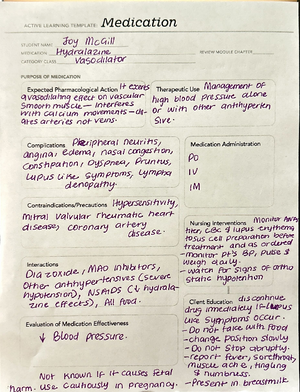 ACTIVE LEARNING TEMPLATE: Medication
STUDENT NAME Joy McGill
MEDICATION Hydralazine
REVIEW MODULE CHAPTER
CATEGORY CLASS Vasodilator
PURPOSE OF MEDICATION
Expected Pharmacological Action It exerts
a vasodilating effect on vascular
Smooth muscle— Interferes
with calcium movements—di-
lates arteries not veins.
Therapeutic Use Management of
high blood pressure alone
or with other antihyperten
Sive.
Complications Peripheral neuritis,
angina, edema, nasal congestion,
Constipation, Dyspnea, Pruritus,
Lupus like Symptoms, Lympha
denopathy.
Medication Administration
PO
IV
IM
Contraindications/Precautions Hypersensitivity,
Mitral Valvular rheumatic heart
disease, coronary artery
disease.
Nursing Interventions Monitor
titer, CBC & lupus erythema
tosus cell preparation before
treatment and as ordered
-monitor pt's BP, pulse &
weigh daily.
-watch for signs of ortho
static hypotension
Interactions
Diazoxide, MAO inhibitors,
Other antihypertensives (severe
hypotension), NSAIDS (↓ hydrala-
zine effects), All food.
Client Education discontinue
drug immediately if lupus
like Symptoms occur.
-Do not take with food
-change position slowly
-Do not stop abruptly.
-report fever, sorethroat,
muscle ache, tingling
& numbness.
-Present in breastmilk
Evaluation of Medication Effectiveness
↓ Blood pressure.
Not known if it causes fetal
harm. use cautiously in pregnancy.